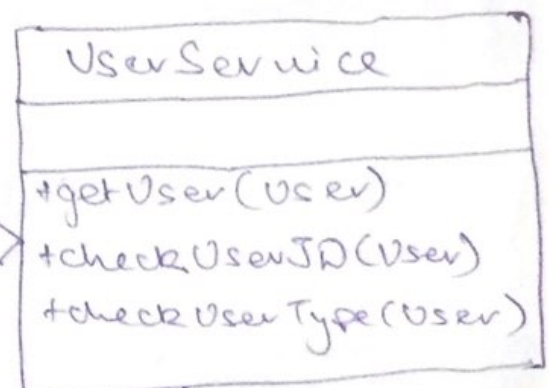 UserService
+getUser(User)
+checkUserID(User)
+checkUserType(User)